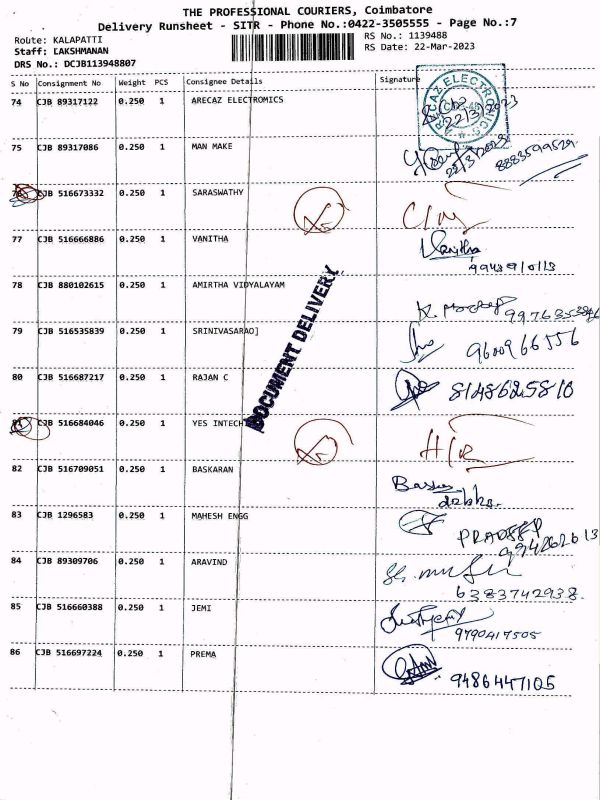 THE PROFESSIONAL COURIERS, Coimbatore
Delivery Runsheet - SITR - Phone No.:0422-3505555 - Page No.:7
Route: KALAPATTI
RS No.: 1139488
Staff: LAKSHMANAN
RS Date: 22-Mar-2023
DRS No.: DCJB113948807
S No Consignment No Weight PCS Consignee Details Signature
74 CJB 89317122 0.250 1 ARECAZ ELECTROMICS
ARECAZ ELECTRONICS
22/3/2023
75 CJB 89317086 0.250 1 MAN MAKE
22/3/2023 8883599529
CJB 516673332 0.250 1 SARASWATHY
77 CJB 516666886 0.250 1 VANITHA Vanitha
78 CJB 880102615 0.250 1 AMIRTHA VIDYALAYAM
79 CJB 516535839 0.250 1 SRINIVASARAO] 9600966556
80 CJB 516687217 0.250 1 RAJAN C 8148625810
81 CJB 516684046 0.250 1 YES INTECH
DOCUMENT DELIVERY
82 CJB 516709051 0.250 1 BASKARAN
83 CJB 1296583 0.250 1 MAHESH ENGG
84 CJB 89309706 0.250 1 ARAVIND
6383742938
85 CJB 516660388 0.250 1 JEMI
9790417505
86 CJB 516697224 0.250 1 PREMA
9486447105